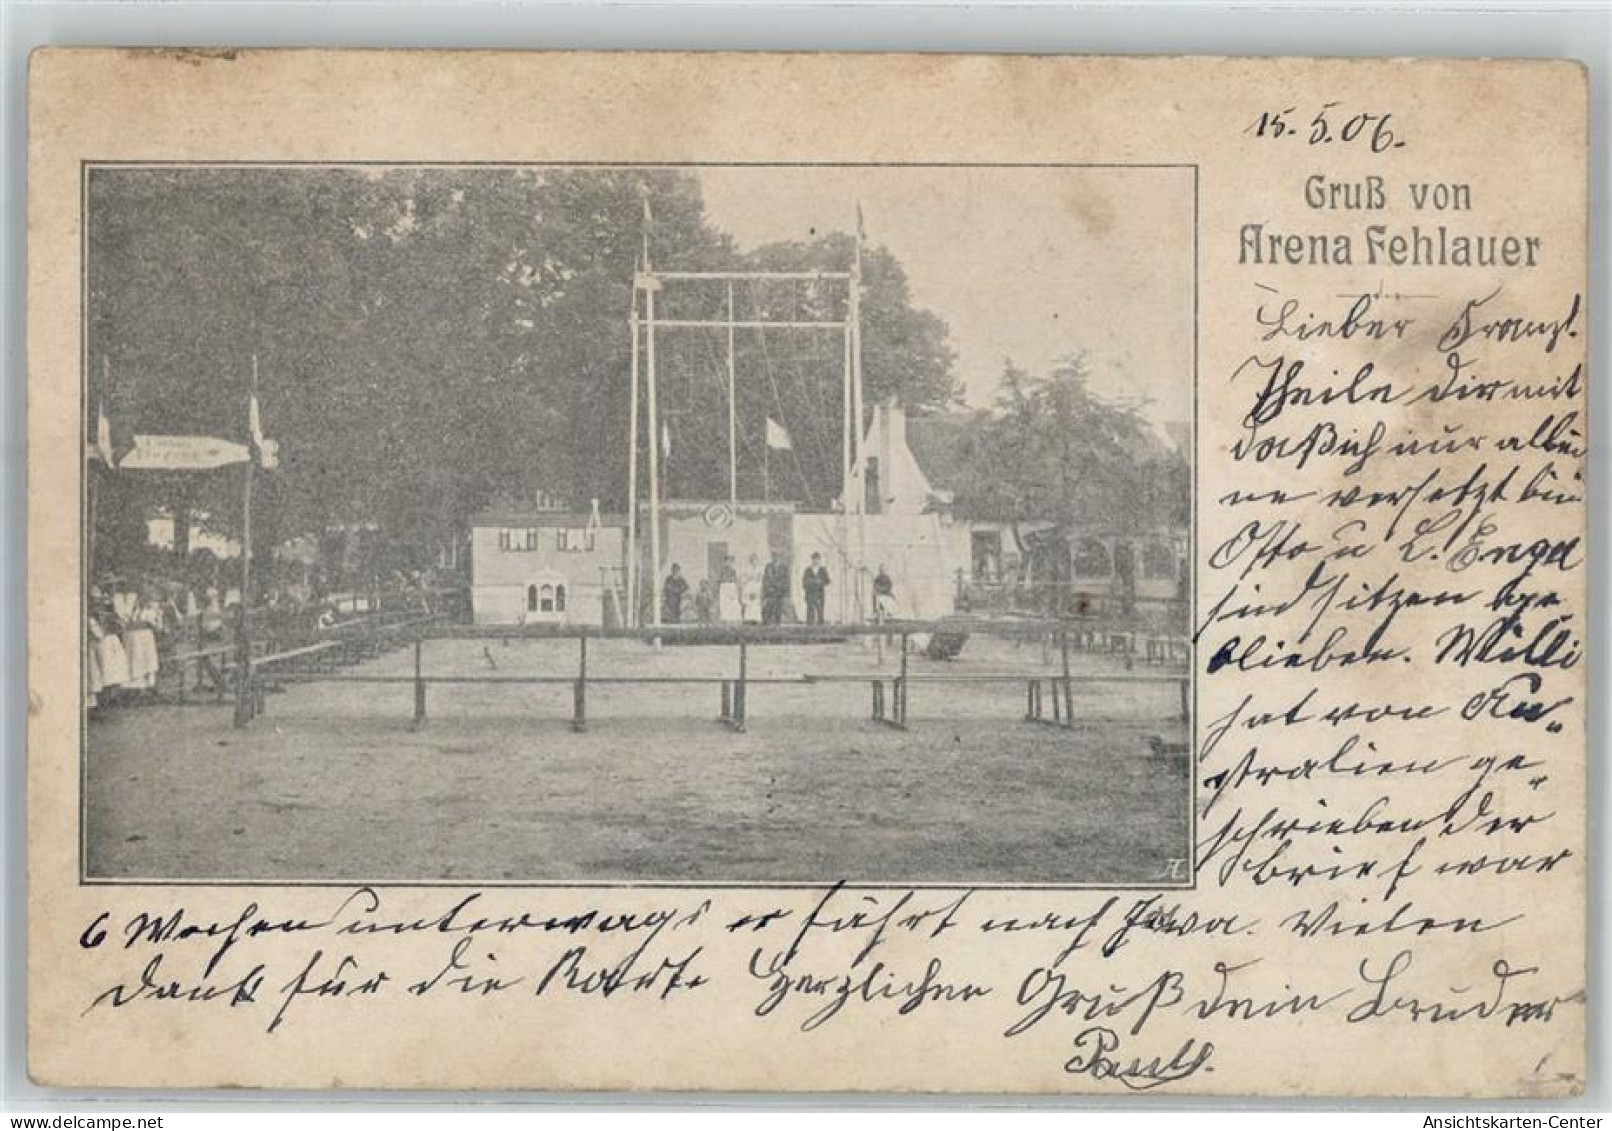 15.5.06.
Gruß von
Arena Fehlauer
Lieber Franz.
Theile dir mit
daß ich nur allei
ne versetzt bin
Otto u L. Engel
sind sitzen ge„
blieben. Willi
hat von Au„
stralien ge„
schrieben der
brief war
6 Wochen unterwegs er fährt nach Java. Vielen
Dank für die Karte Herzlichen Gruß dein Bruder
Paul.
A
Ansichtskarten-Center